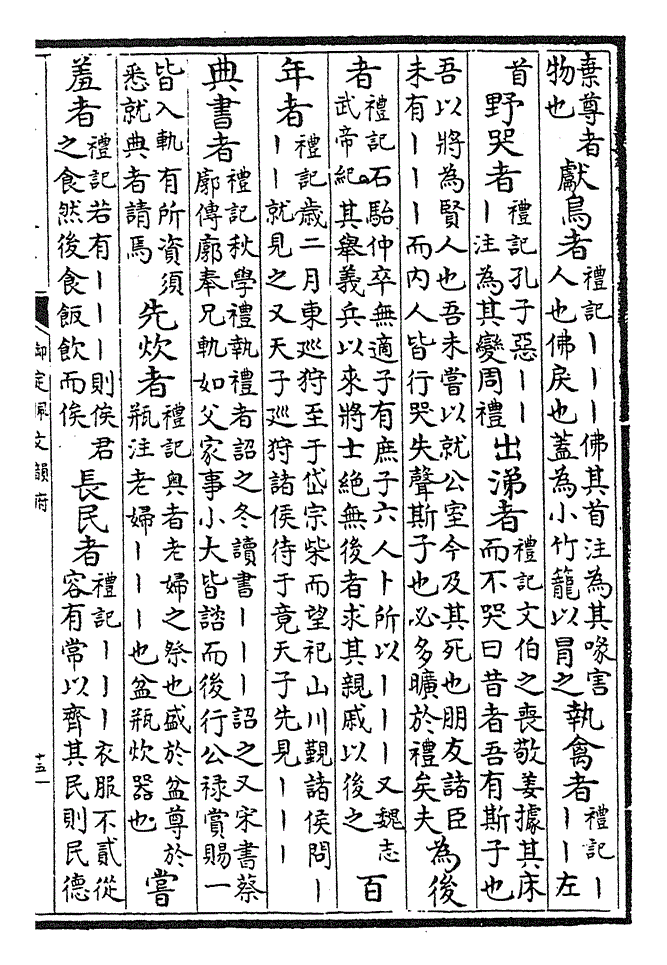 棄尊者
物也
獻鳥者
禮記｜｜｜佛其首注為其喙害
人也佛戾也蓋為小竹籠以冒之
執禽者
禮記｜
｜｜左
首
野哭者
禮記孔子惡｜｜
｜注為其變周禮
出涕者
禮記文伯之喪敬姜據其床
而不哭曰昔者吾有斯子也
吾以將為賢人也吾未嘗以就公室今及其死也朋友諸臣
未有｜｜｜而內人皆行哭失聲斯子也必多曠於禮矣夫
為後
者
禮記石駘仲卒無適子有庶子六人卜所以｜｜｜又魏志
武帝紀其舉義兵以來將士絕無後者求其親戚以後之
百
年者
禮記歲二月東巡狩至于岱宗柴而望祀山川覲諸侯問｜
｜｜就見之又天子巡狩諸侯待于竟天子先見｜｜｜
典書者
禮記秋學禮執禮者詔之冬讀書｜｜｜詔之又宋書蔡
廓傳廓奉兄軌如父家事小大皆諮而後行公祿賞賜一
皆入軌有所資須
悉就典者請焉
先炊者
禮記奧者老婦之祭也盛於盆尊於
瓶注老婦｜｜｜也盆瓶炊器也
嘗
羞者
禮記若有｜｜｜則俟君
之食然後食飯飲而俟
長民者
禮記｜｜｜衣服不貳從
容有常以齊其民則民德
御定佩文韻府
十五